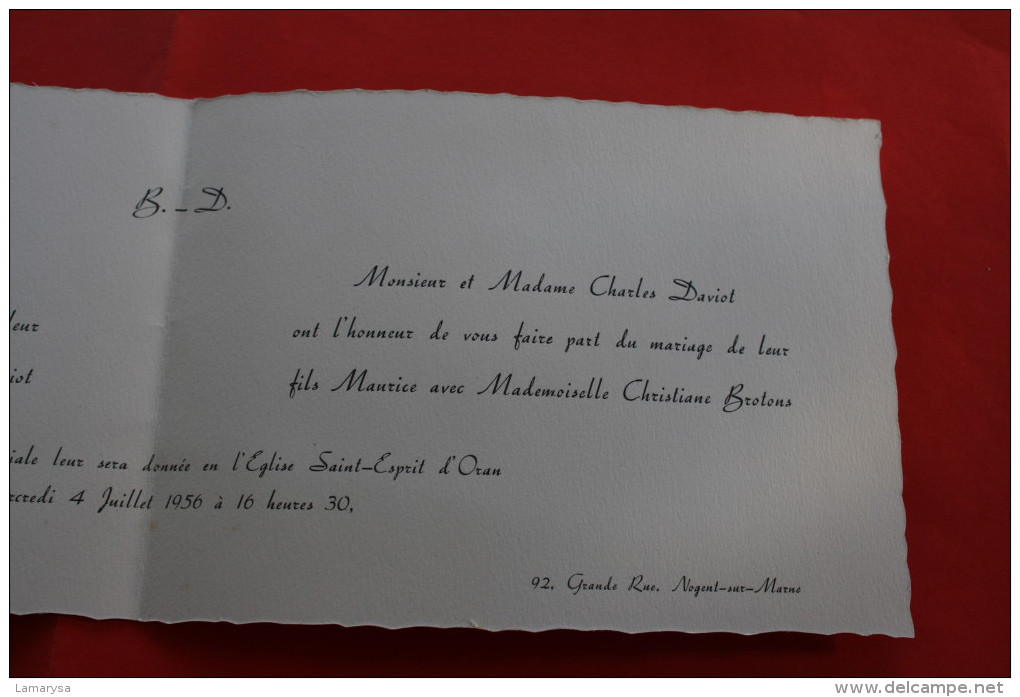 B. - D.
Monsieur et Madame Charles Daviot
ont l'honneur de vous faire part du mariage de leur
fils Maurice avec Mademoiselle Christiane Brotons
leur
iot
iale leur sera donnée en l'Eglise Saint-Esprit d'Oran
rcredi 4 Juillet 1956 à 16 heures 30,
92, Grande Rue, Nogent-sur-Marne
Lamarysa
www.delcampe.net